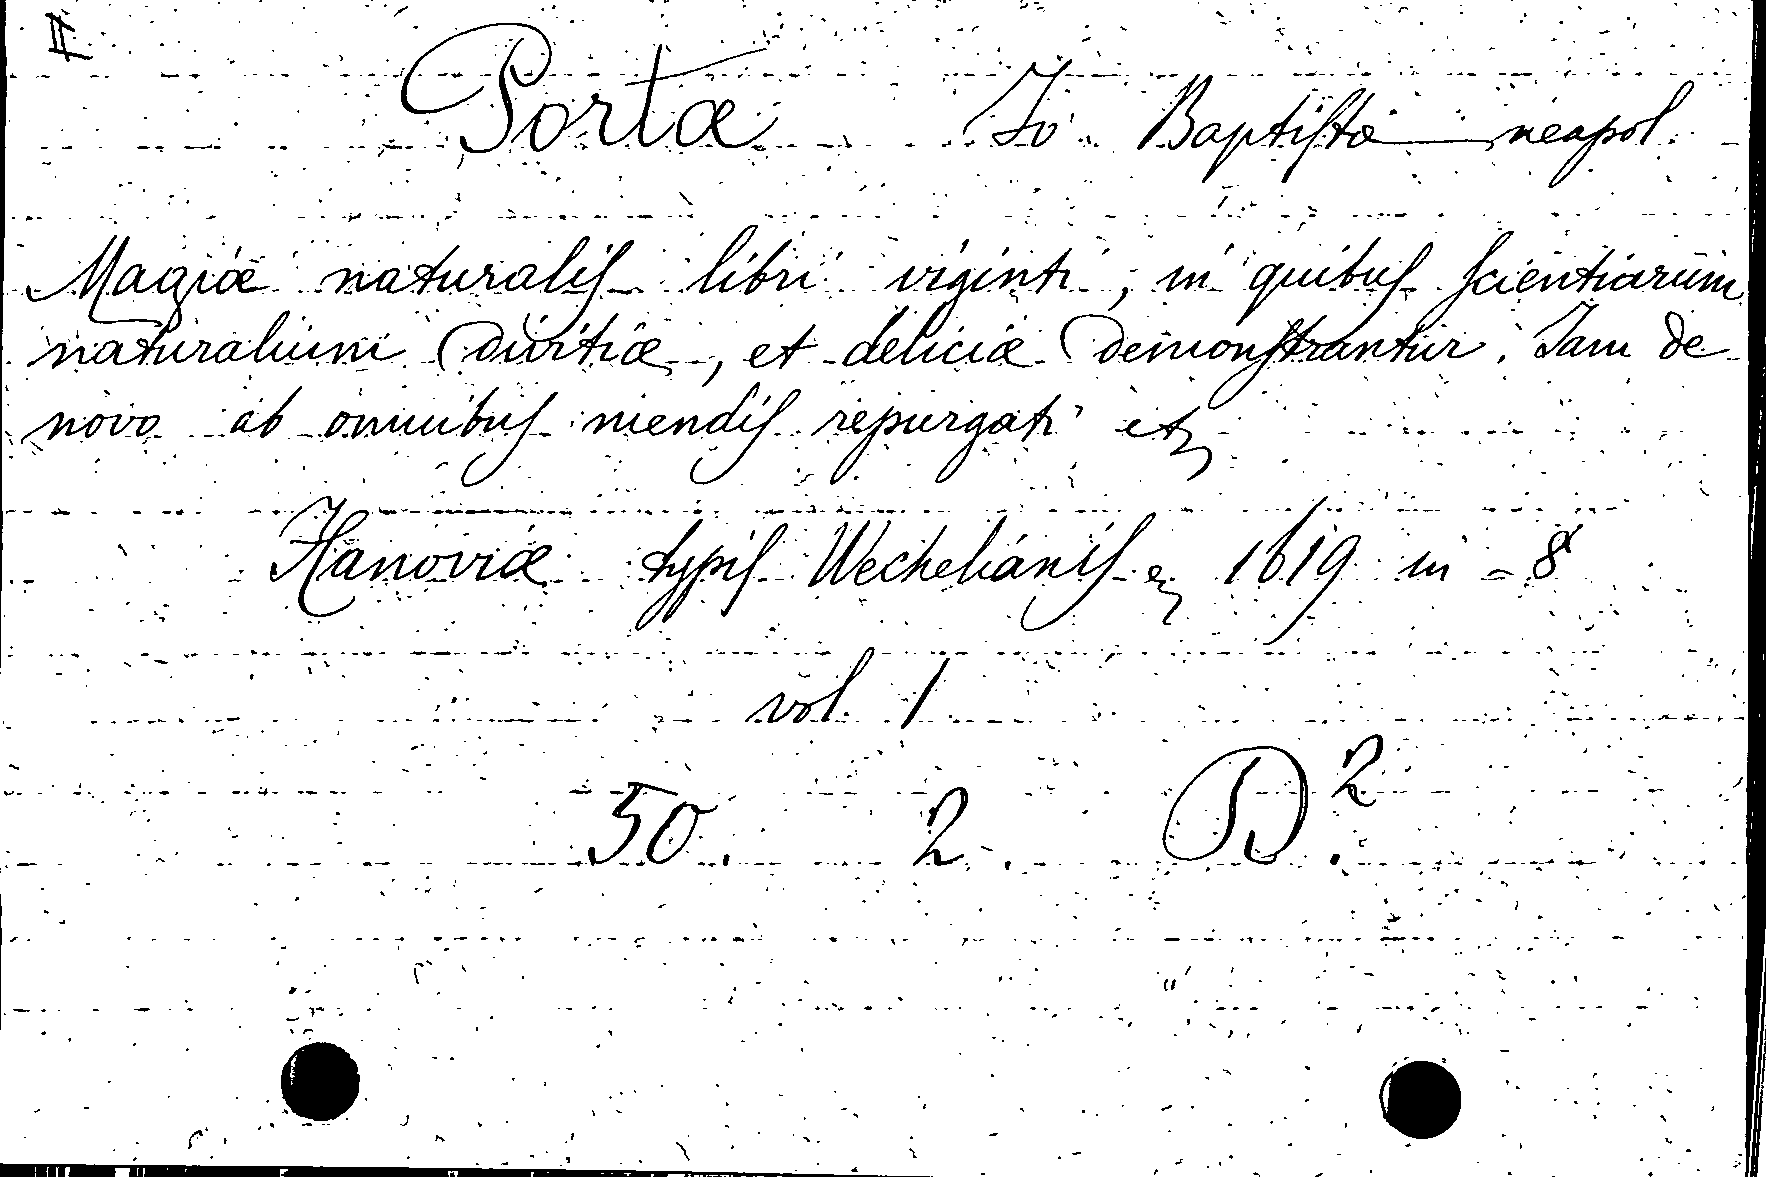 II
Portæ Io Baptistæ neapol.
Magiæ naturalis libri viginti, in quibus scientiarum
naturalium divitiæ, et deliciæ demonstrantur. Iam de
novo ab omnibus mendis repurgati etc
Hanoviæ typis Wechelianis 1619 in-8
vol. 1
50. 2. D².